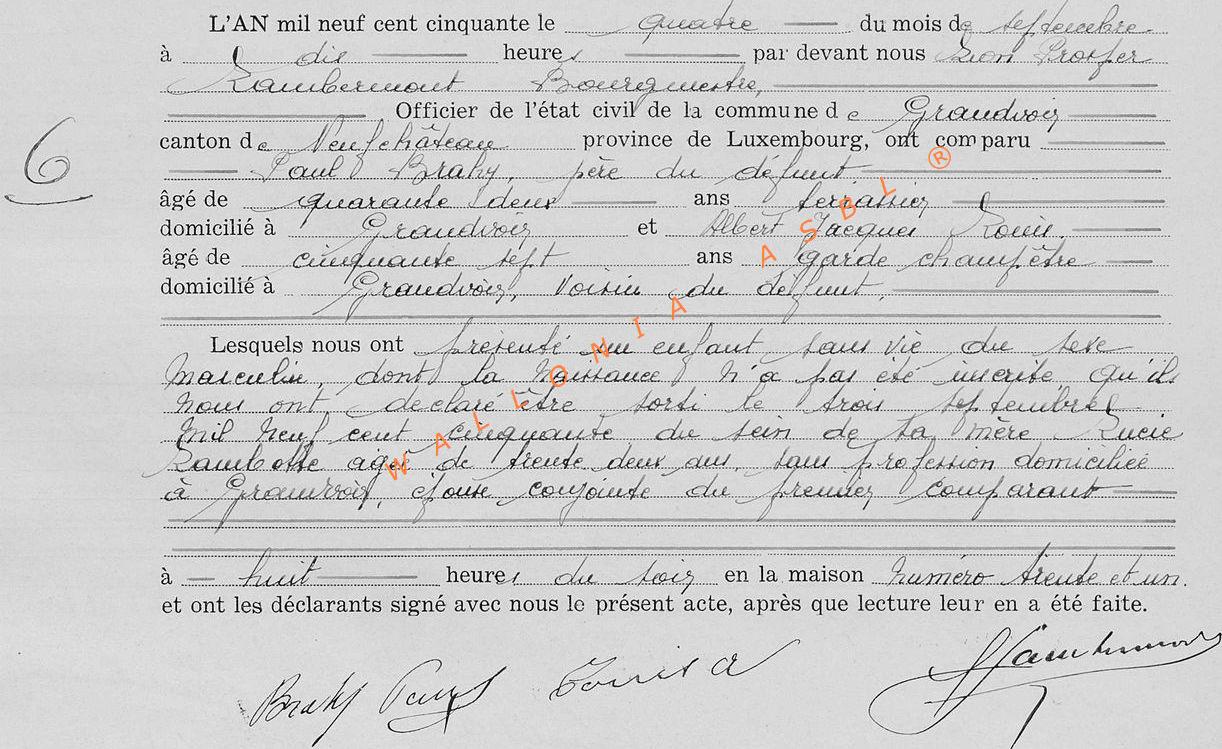 L'AN mil neuf cent cinquante le quatre du mois de septembre
à dix heures par devant nous Léon Prosper
Lambermont Bourgmestre,
Officier de l'état civil de la commune de Grandvoir
6 canton de Neufchâteau province de Luxembourg, ont comparu
Paul Brahy, père du défunt
âgé de quarante deux ans terrassier
domicilié à Grandvoir et Albert Jacques Louis.
âgé de cinquante sept ans garde champêtre
domicilié à Grandvoir, voisin du défunt,
Lesquels nous ont présenté un enfant sans vie du sexe
masculin, dont la naissance n'a pas été inscrite, qu'ils
nous ont declaré être sorti le trois septembre
mil neuf cent cinquante du sein de sa mère Lucie
Lambotte agée de trente deux ans sans profession domiciliée
à Grandvoir, épouse conjointe du premier comparant
à huit heures du soir en la maison numéro trente et un.
et ont les déclarants signé avec nous le présent acte, après que lecture leur en a été faite.
Brahy Paul Louis A Lambermont
WALLONIA ASBL ®